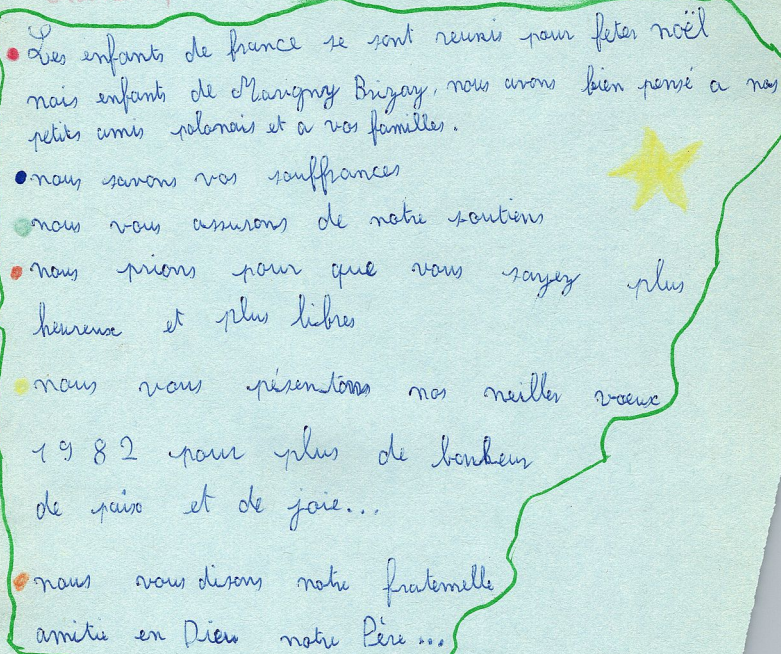 Les enfants de france se sont reunis pour fêter noël
nais enfants de Marigny Brizay, nous avons bien pensé a nos
petits amis polonais et a vos familles.
nous savons vos souffrances
nous vous assurons de notre soutiens
nous prions pour que vous sayez plus
heureux et plus libres
nous vous présentons nos meiller vœux
1982 pour plus de bonheur
de paix et de joie...
nous vous disons notre fraternelle
amitie en Dieu notre Père...